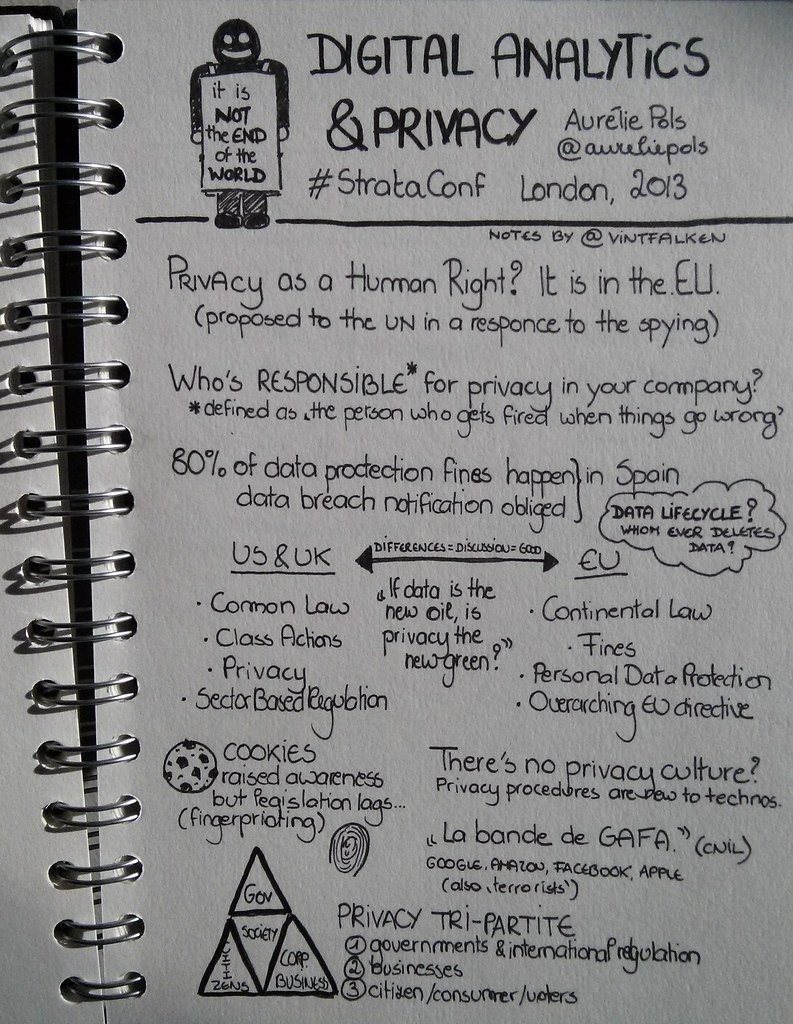 it is
NOT
the END
of the
WORLD
DIGITAL ANALYTiCS
& PRIVACY
Aurélie Pols
@aureliepols
#StrataConf London, 2013
NOTES BY @VINTFALKEN
PRIVACY as a Human Right? It is in the EU.
(proposed to the UN in a responce to the spying)
Who's RESPONSIBLE* for privacy in your company?
*defined as ‚the person who gets fired when things go wrong'
80% of data protection fines happen } in Spain
data breach notification obliged
DATA LIFECYCLE?
WHOM EVER DELETES
DATA?
US & UK
DIFFERENCES = DISCUSSION = GOOD
EU
• Common Law
• Class Actions
• Privacy
• Sector Based Regulation
„If data is the
new oil, is
privacy the
new green?”
• Continental Law
• Fines
• Personal Data Protection
• Overarching EU directive
COOKIES
raised awareness
but legislation lags...
(fingerprinting)
There's no privacy culture?
Privacy procedures are new to technos.
„La bande de GAFA.” (CNIL)
GOOGLE, AMAZON, FACEBOOK, APPLE
(also ‚terrorists')
GOV
SOCIETY
CITIZENS
CORP.
BUSINESS
PRIVACY TRI-PARTITE
① governments & international regulation
② businesses
③ citizen/consumer/voters